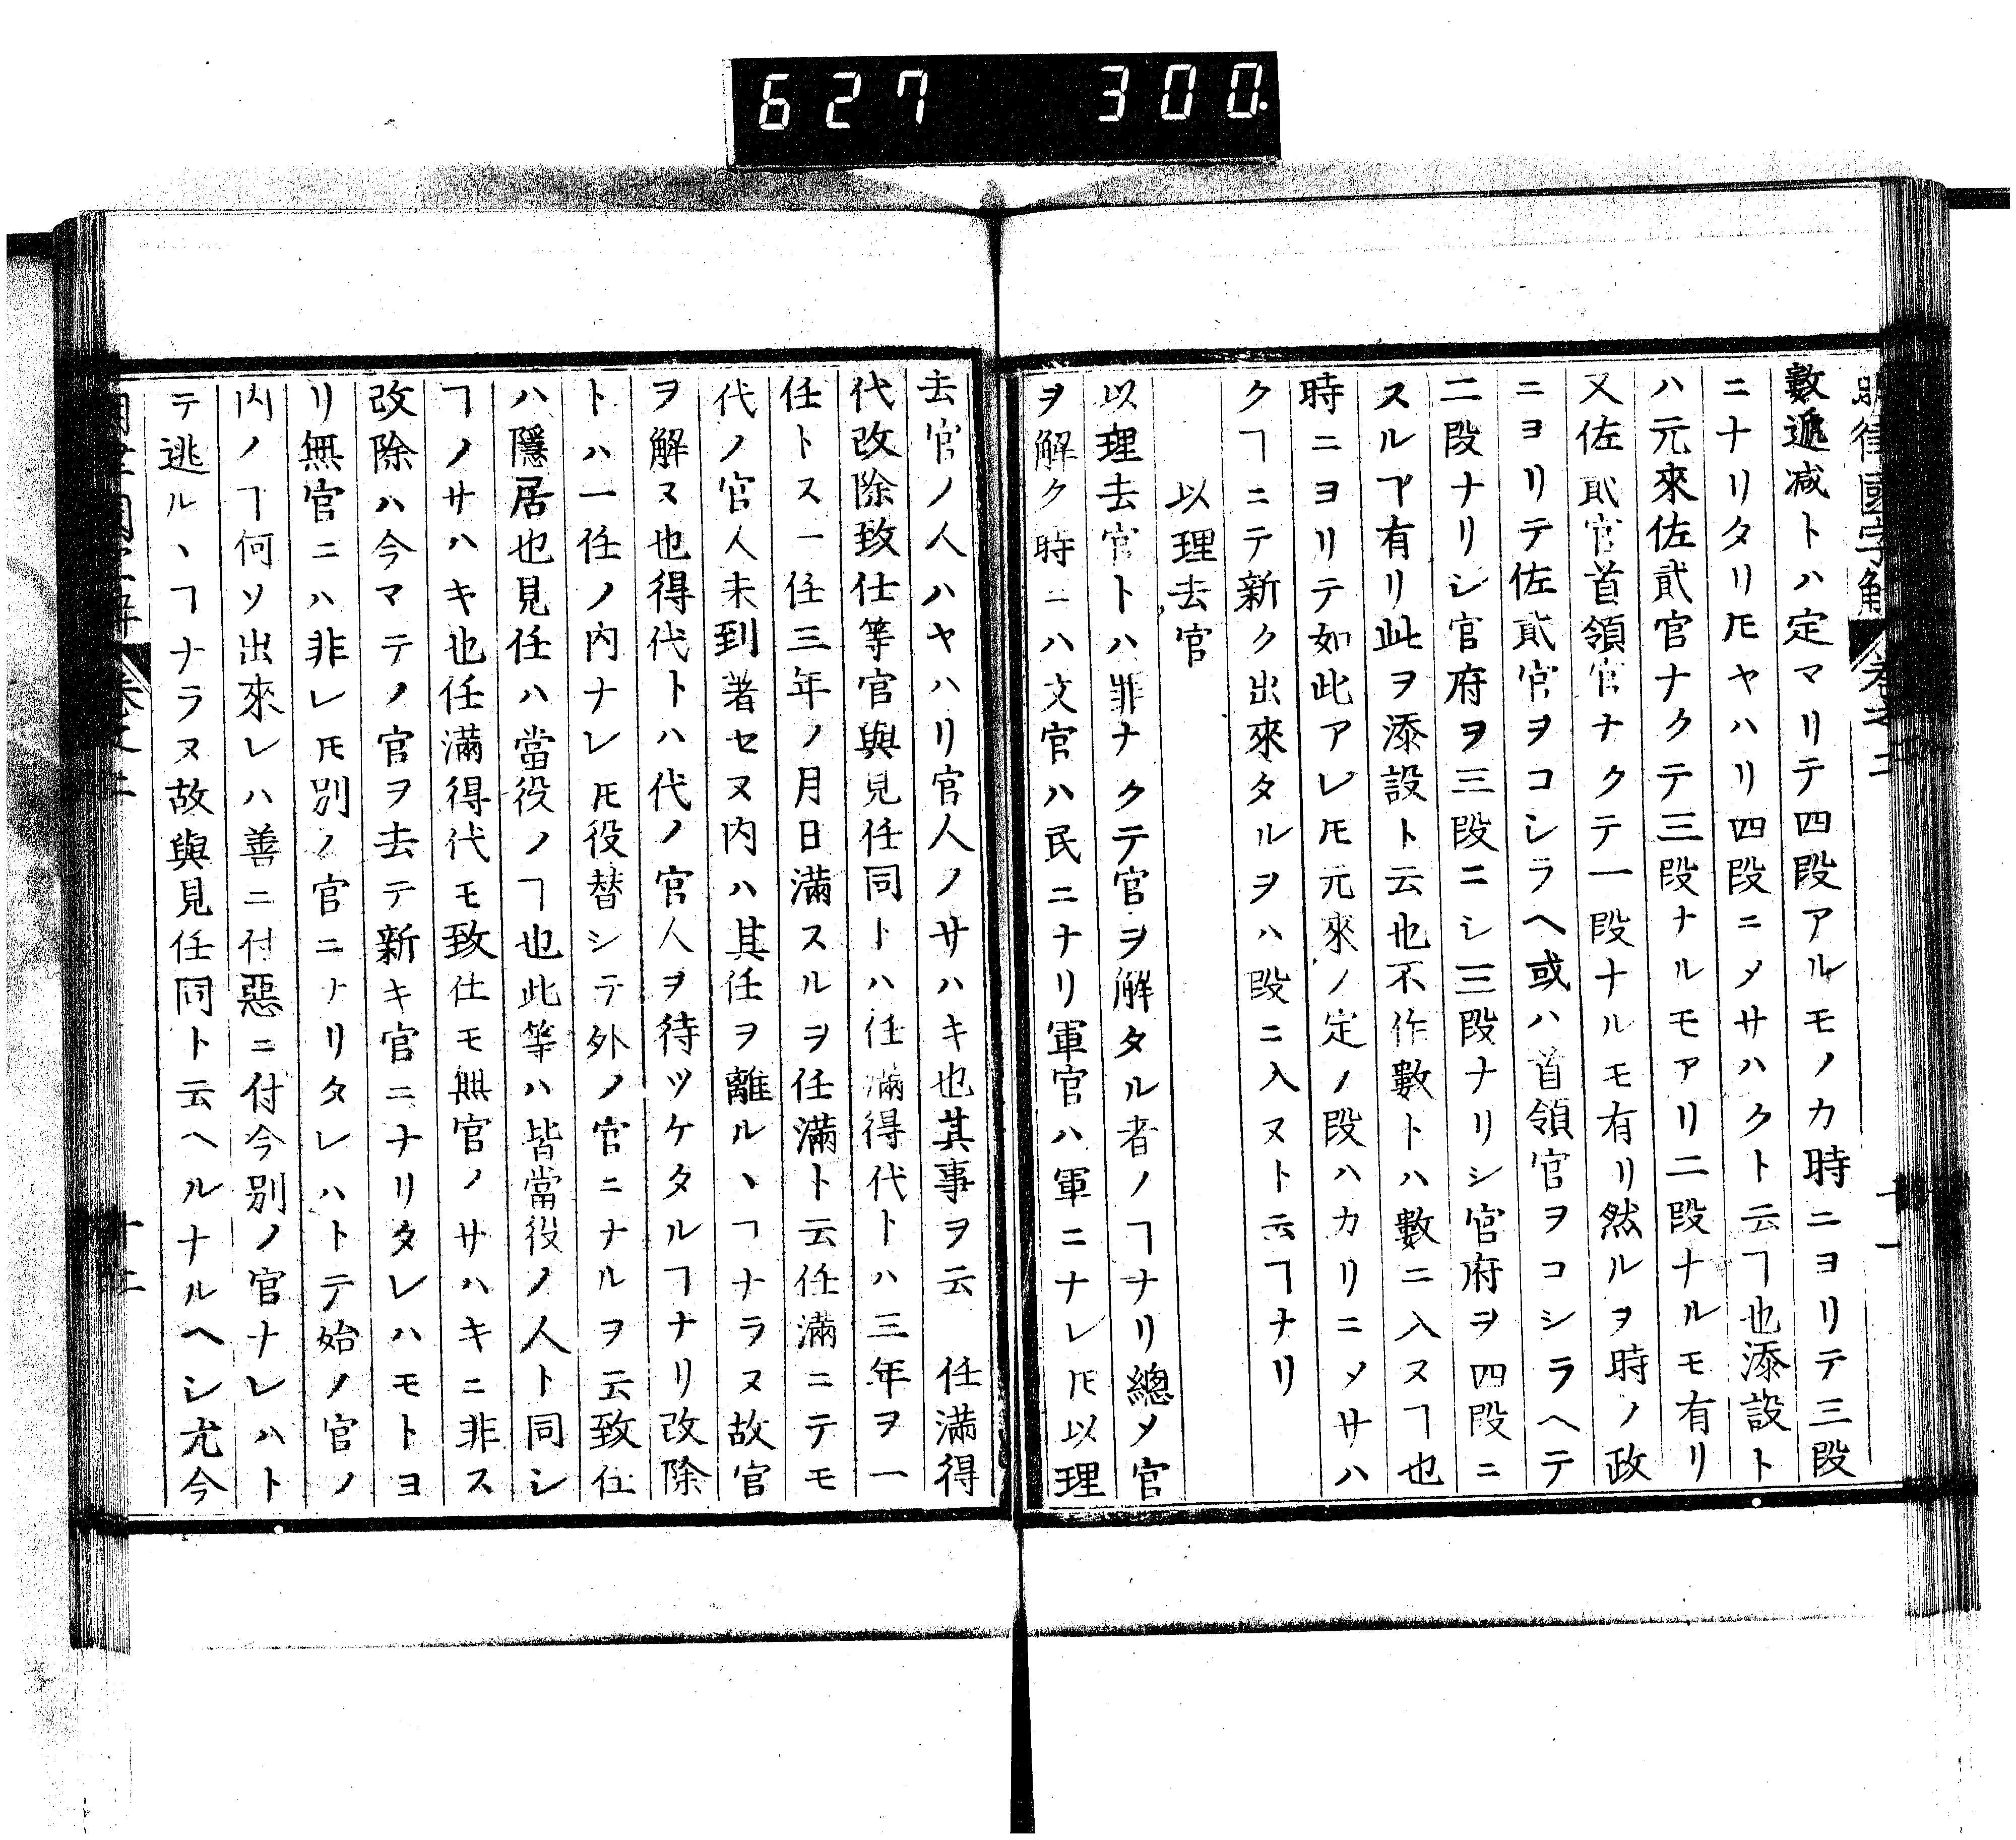 627 300.
明律國字解 卷之二 十一
數遞减トハ定マリテ四段アルモノカ時ニヨリテ三段
ニナリタリ𪜈ヤハリ四段ニメサハクト云ヿ也添設ト
ハ元來佐貳官ナクテ三段ナルモアリ二段ナルモ有リ
又佐貳官首領官ナクテ一段ナルモ有リ然ルヲ時ノ政
ニヨリテ佐貳官ヲコシラヘ或ハ首領官ヲコシラヘテ
二段ナリシ官府ヲ三段ニシ三段ナリシ官府ヲ四段ニ
スルヿ有リ此ヲ添設ト云也不作數トハ數ニ入ヌヿ也
時ニヨリテ如此アレ𪜈元來ノ定ノ段ハカリニメサハ
クヿニテ新ク出來タルヲハ段ニ入ヌト云ヿナリ
以理去官
以理去官トハ罪ナクテ官ヲ解タル者ノヿナリ總メ官
ヲ解ク時ニハ文官ハ民ニナリ軍官ハ軍ニナレ𪜈以理
去官ノ人ハヤハリ官人ノサハキ也其事ヲ云 任滿得
代改除致仕等官與見任同トハ任滿得代トハ三年ヲ一
任トス一任三年ノ月日滿スルヲ任滿ト云任滿ニテモ
代ノ官人未到著セヌ内ハ其任ヲ離ルヽヿナラヌ故官
ヲ解ヌ也得代トハ代ノ官人ヲ待ツケタルヿナリ改除
トハ一任ノ内ナレ𪜈役替シテ外ノ官ニナルヲ云致仕
ハ隱居也見任ハ當役ノヿ也此等ハ皆當役ノ人ト同シ
ヿノサハキ也任滿得代モ致仕モ無官ノサハキニ非ス
改除ハ今マテノ官ヲ去テ新キ官ニナリタレハモトヨ
リ無官ニハ非レ𪜈別ノ官ニナリタレハトテ始ノ官ノ
内ノヿ何ソ出來レハ善ニ付惡ニ付今别ノ官ナレハト
テ逃ルヽヿナラヌ故與見任同ト云ヘルナルヘシ尤今
明律國字解 卷之二 十二